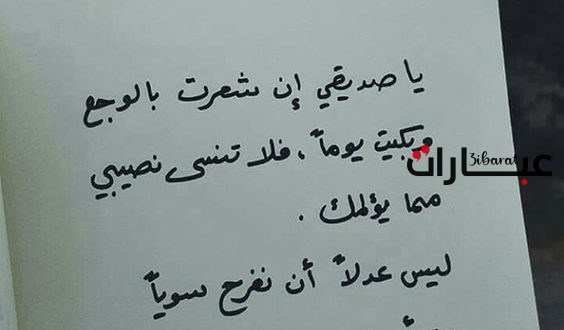 يا صديقي إن شعرت بالوجع
وبكيت يوماً، فلا تنسى نصيبي
مما يؤلمك .
ليس عدلاً أن نفرح سوياً
عبارات
3ibarat